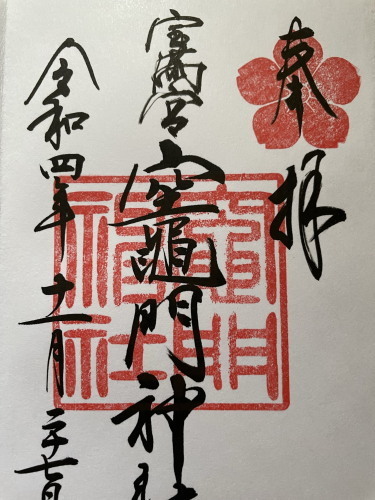 奉拝
宝満宮 竈門神社
令和四年 十一月 二十七日
竈門神社